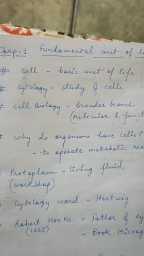 Chap: 1 Fundamental unit of
# Cell - basic unit of life
# Cytology - study of cells
# Cell Biology - broader branch
(molecular & funct
why do organisms have cells?
- to operate metabolic rea
Protoplasm - living fluid,
(workshop)
Cytology word - Hertwig
Robert Hooke - Father of cy
(1665) - Book Microg